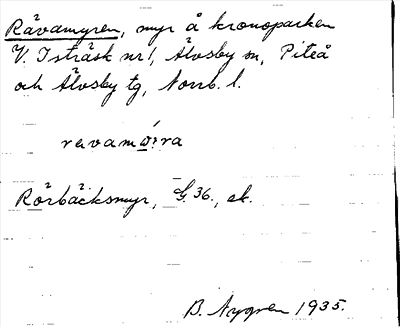 Råvamyren, myr å kronoparken
V. Isträsk nr 1, Älvsby sn, Piteå
och Älvsby tg, Norrb. l.
revamø̀ra
Rörbäcksmyr, G. 36., ek.
B. Nygren 1935.